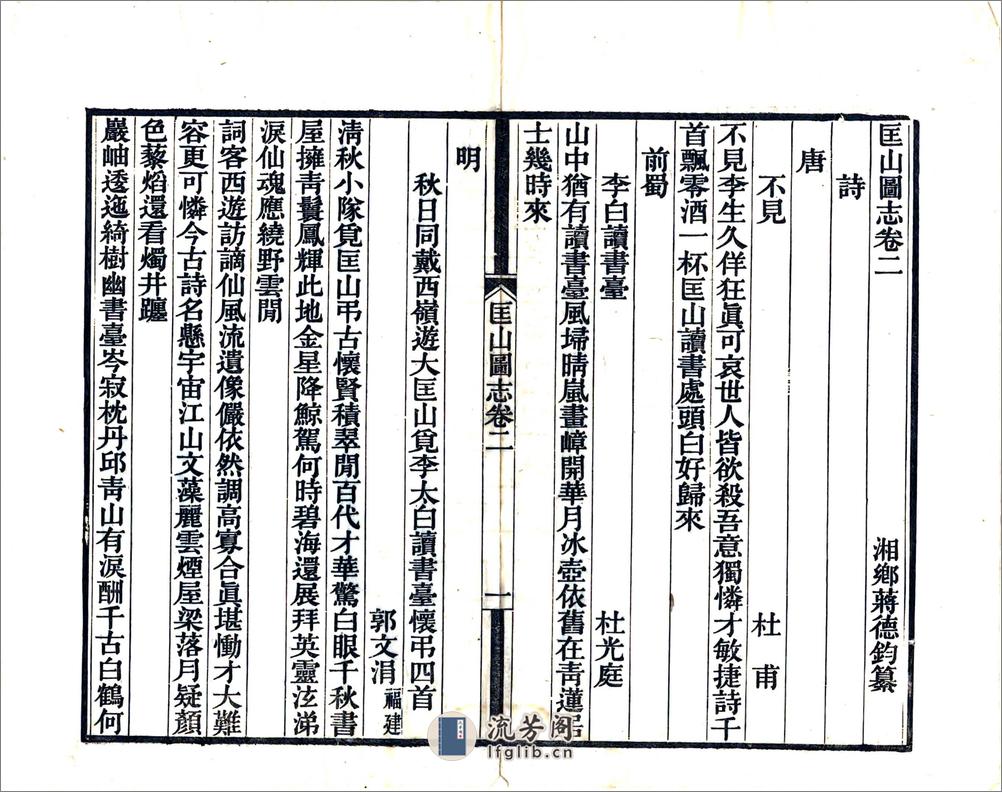 匡山圖志卷二
湘鄉蔣德鈞纂
詩
唐
不見
杜甫
不見李生久佯狂眞可哀世人皆欲殺吾意獨憐才敏捷詩千
首飄零酒一杯匡山讀書處頭白好歸來
前蜀
李白讀書臺
杜光庭
山中猶有讀書臺風埽晴嵐畫嶂開華月冰壺依舊在靑蓮居
士幾時來
匡山圖志卷二
一
明
秋日同戴西嶺遊大匡山覓李太白讀書臺懷弔四首
郭文涓
福建
淸秋小隊覓匡山弔古懷賢積翠閒百代才華驚白眼千秋書
屋擁靑鬟鳳輝此地金星降鯨駕何時碧海還展拜英靈泫涕
淚仙魂應繞野雲閒
詞客西遊訪謫仙風流遺像儼依然調高寡合眞堪慟才大難
容更可憐今古詩名懸宇宙江山文藻麗雲煙屋梁落月疑顏
色藜熖還看燭井躔
巖岫透迤綺樹幽書臺岑寂枕丹邱靑山有淚酬千古白鶴何
流芳阁
lfglib.cn